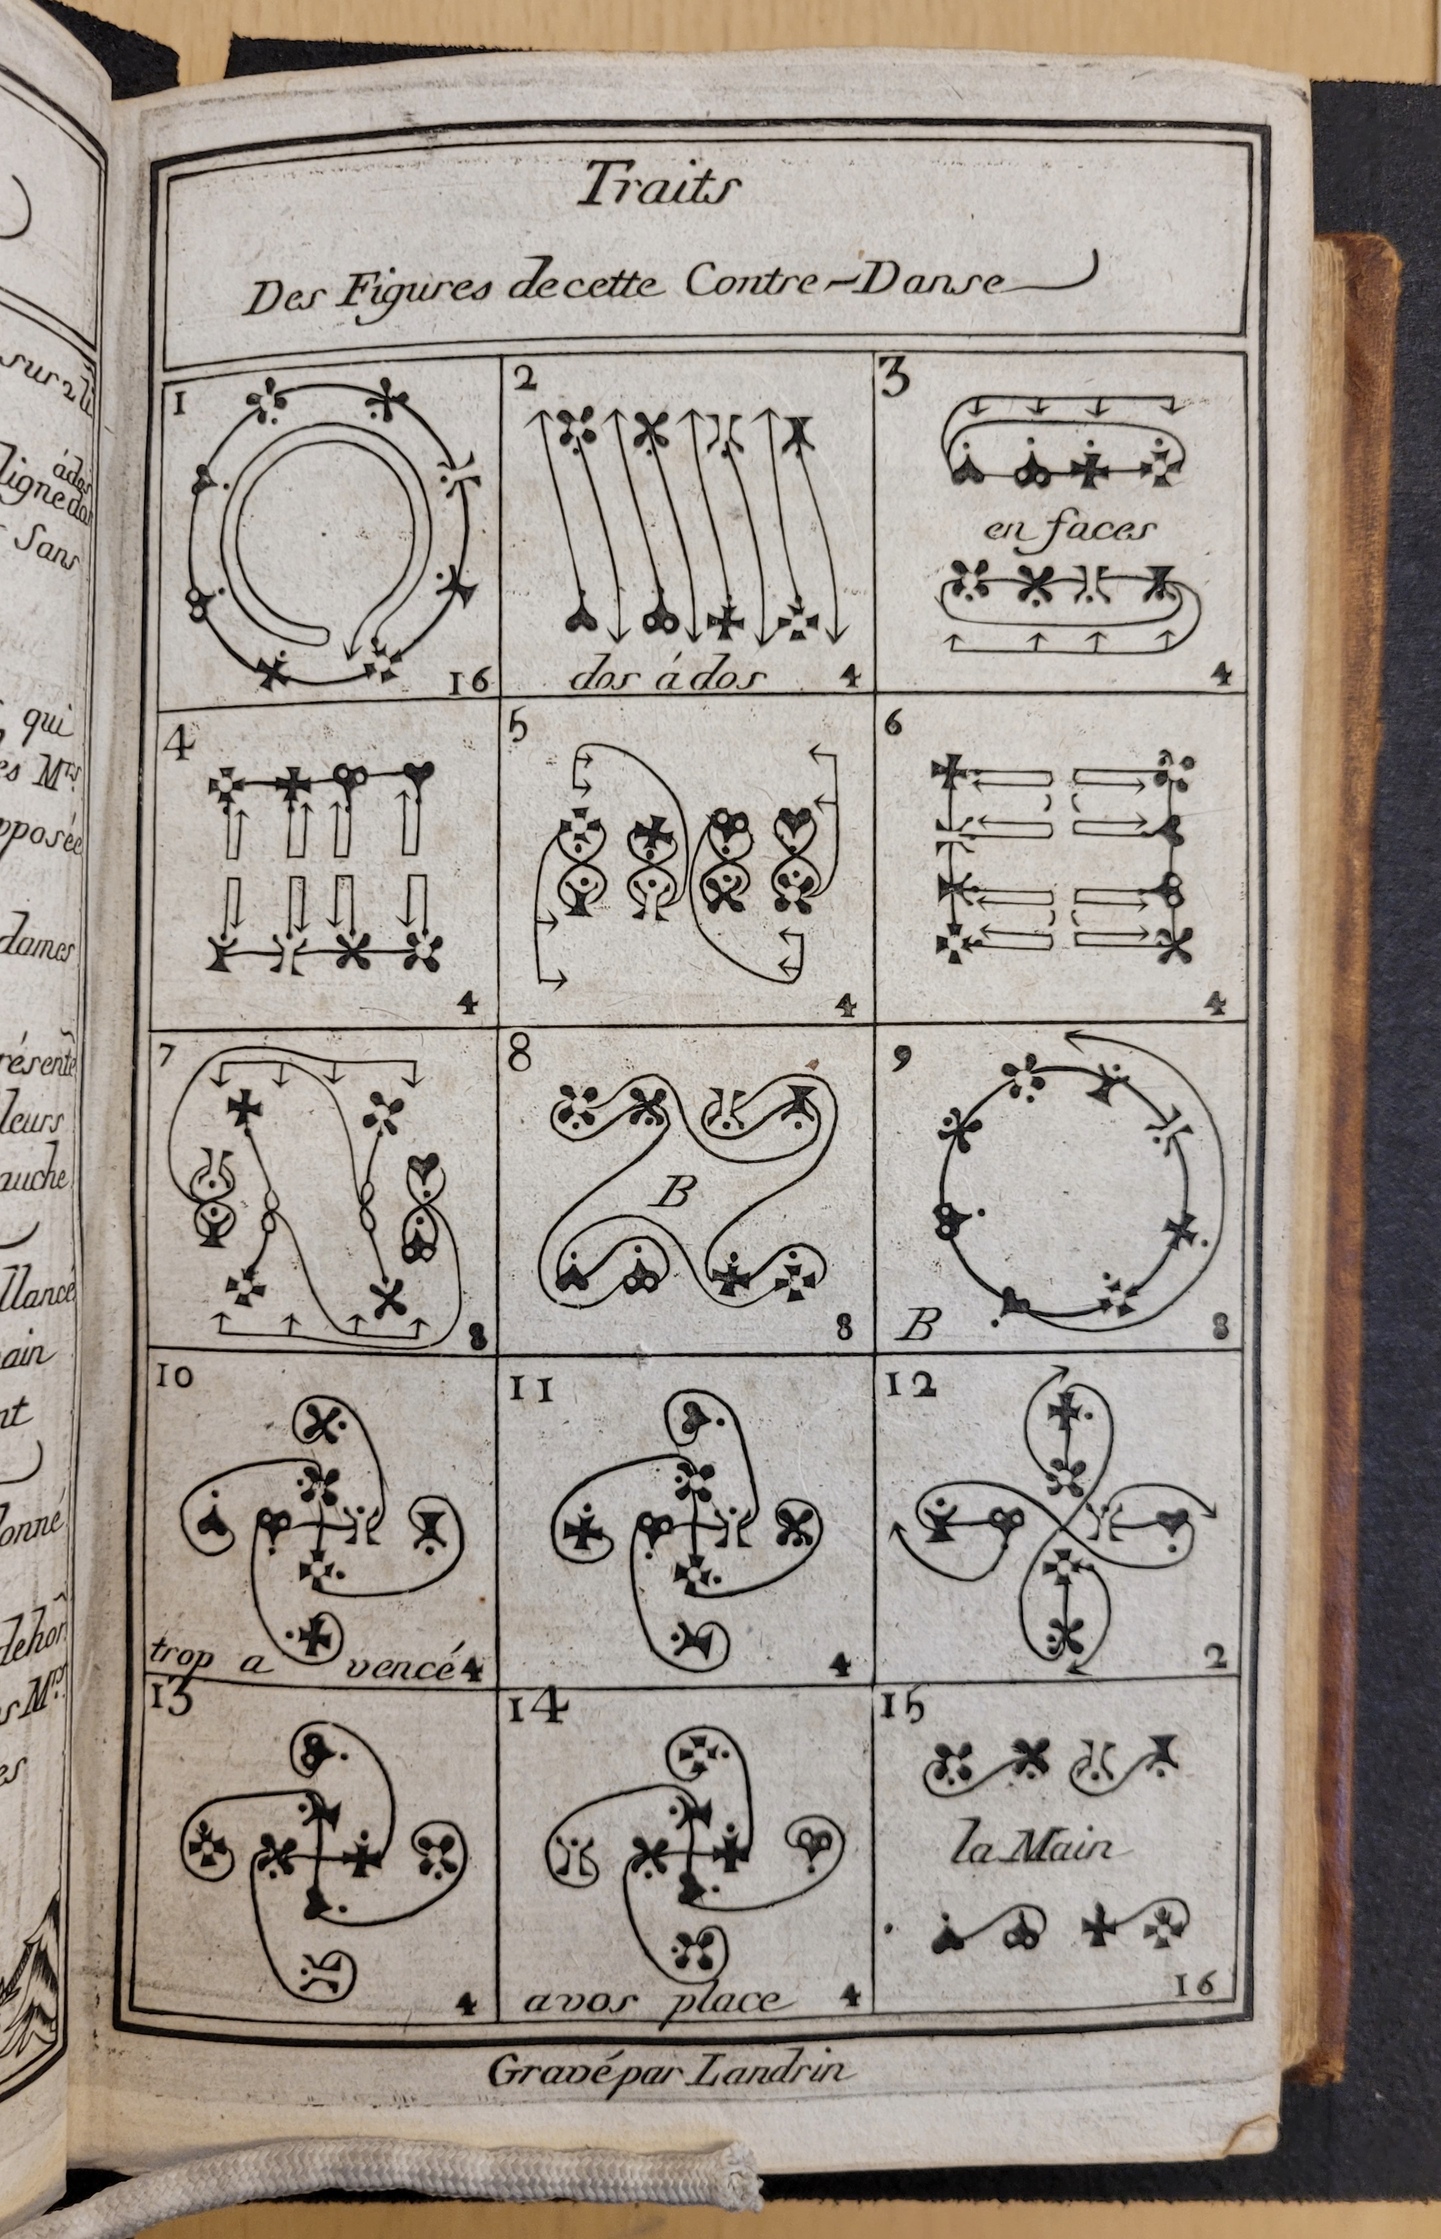 Traits
Des Figures de cette Contre-Danse
1
16
2
dos á dos 4
3
en faces
4
4
4
5
4
6
4
7
8
8
B
8
9
B 8
10
trop a vencé 4
11
4
12
2
13
4
14
avos place 4
15
la Main
16
Gravé par Landrin
sur 2 li
ádos
ligne dos
Sans
qui
es Mrs
pposée
dames
résente
leurs
auche
llancé
ain
nt
onné
dehor
s Mrs
es